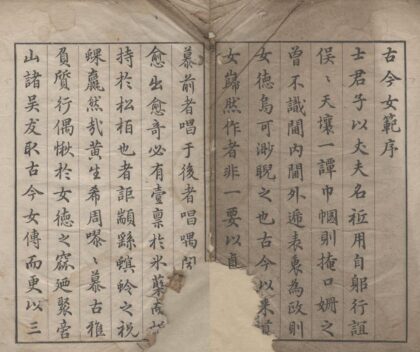 古今女範序
士君子以丈夫名祗用自躬行誼
俣〻天壤一譚巾幗則掩口姍之
曾不識閫內閫外遞表裏為政則
女德烏可渺睨之也古今以來道
女歸然作者非一要以
慕前者唱于後者唱喁
愈出愈奇必有壹稟於氷蘗
持於松柏也者詎顓繇螟蛉之祝
蜾蠃然哉黃生希周嘐〻慕古雅
負質行偶愀於女德之廼聚
山諸吳友取古今女傳而更以三